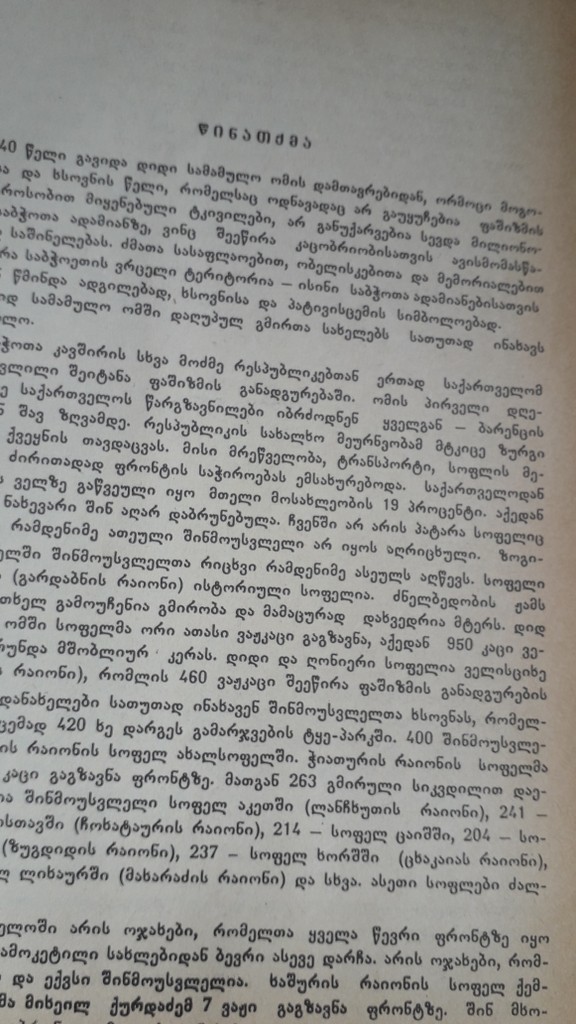 წინათქმა
40 წელი გავიდა დიდი სამამულო ომის დამთავრებიდან, ორმოცი მოგო-
და ხსოვნის წელი, რომელსაც ოდნავადაც არ გაუყუჩებია ფაშიზმის
როსობით მიყენებული ტკივილები, არ განუქარვებია სევდა მილიონო-
საბჭოთა ადამიანზე, ვინც შეეწირა კაცობრიობისათვის ავისმომასწა-
საშინელებას. ძმათა სასაფლაოებით, ობელისკებითა და მემორიალებით
რა საბჭოეთის ვრცელი ტერიტორია — ისინი საბჭოთა ადამიანებისათვის
წმინდა ადგილებად, ხსოვნისა და პატივისცემის სიმბოლოებად.
იდ სამამულო ომში დაღუპულ გმირთა სახელებს სათუთად ინახავს
ლო.
ჭოთა კავშირის სხვა მოძმე რესპუბლიკებთან ერთად საქართველომ
ვლილი შეიტანა ფაშიზმის განადგურებაში. ომის პირველი დღე-
ე საქართველოს წარგზავნილები იბრძოდნენ ყველგან — ბარენცის
ნ შავ ზღვამდე. რესპუბლიკის სახალხო მეურნეობამ მტკიცე ზურგი
ქვეყნის თავდაცვას. მისი მრეწველობა, ტრანსპორტი, სოფლის მე-
ძირითადად ფრონტის საჭიროებას ემსახურებოდა. საქართველოდან
ს ველზე გაწვეული იყო მთელი მოსახლეობის 19 პროცენტი. აქედან
ნახევარი შინ აღარ დაბრუნებულა. ჩვენში არ არის პატარა სოფელიც
რამდენიმე ათეული შინმოუსვლელი არ იყოს აღრიცხული. ზოგი-
ელში შინმოუსვლელთა რიცხვი რამდენიმე ასეულს აღწევს. სოფელი
(გარდაბნის რაიონი) ისტორიული სოფელია. ძნელბედობის ჟამს
თხელ გამოუჩენია გმირობა და მამაცურად დახვედრია მტერს. დიდ
ომში სოფელმა ორი ათასი ვაჟკაცი გაგზავნა, აქედან 950 კაცი ვე-
რუნდა მშობლიურ კერას. დიდი და ღონიერი სოფელია ველისციხე
ს რაიონი), რომლის 460 ვაჟკაცი შეეწირა ფაშიზმის განადგურების
დანახელები სათუთად ინახავენ შინმოუსვლელთა ხსოვნას, რომელ-
ცემად 420 ხე დარგეს გამარჯვების ტყე-პარკში. 400 შინმოუსვლე-
ის რაიონის სოფელ ახალსოფელში. ჭიათურის რაიონის სოფელმა
კაცი გაგზავნა ფრონტზე. მათგან 263 გმირული სიკვდილით დაე-
ია შინმოუსვლელი სოფელ აკეთში (ლანჩხუთის რაიონი), 241 —
ისთავში (ჩოხატაურის რაიონი), 214 — სოფელ ცაიშში, 204 — სო-
(ზუგდიდის რაიონი), 237 — სოფელ ხორშში (ცხაკაიას რაიონი),
ლ ლიხაურში (მახარაძის რაიონი) და სხვა. ასეთი სოფლები ძალ-
ელოში არის ოჯახები, რომელთა ყველა წევრი ფრონტზე იყო
ამოკეტილი სახლებიდან ბევრი ასევე დარჩა. არის ოჯახები, რომ-
და ექვსი შინმოუსვლელია. ხაშურის რაიონის სოფელ ქემ-
მა მიხეილ ქურდაძემ 7 ვაჟი გაგზავნა ფრონტზე. შინ მხო-